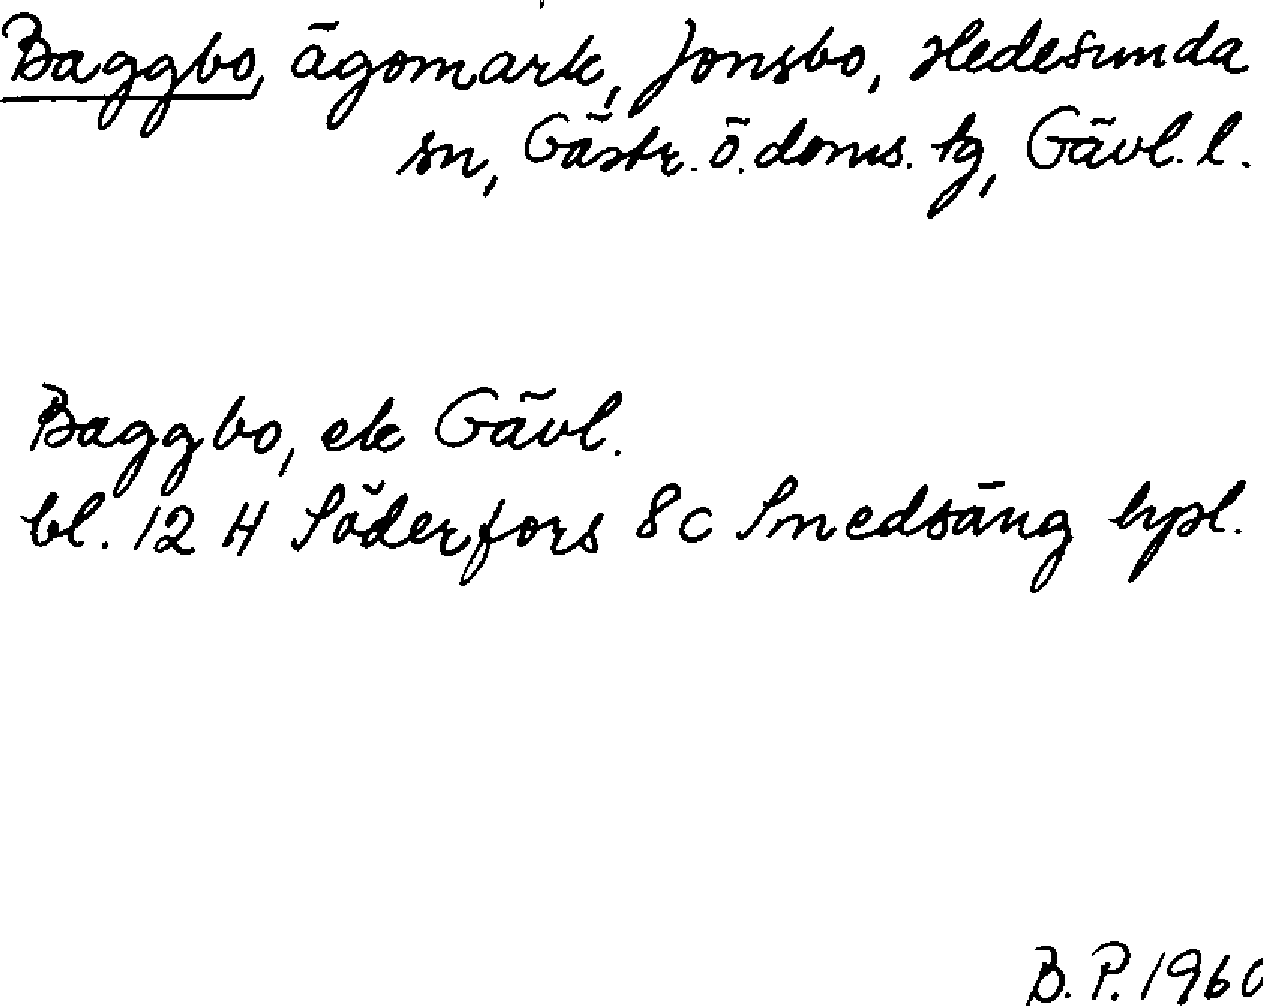 Baggbo, ägomark, Jonsbo, Hedesunda
sn, Gästr. ö. doms. tg, Gävl. l.
Baggbo, ek Gävl.
bl. 12 H Söderfors 8c Smedsäng hpl.
B. P. 1960